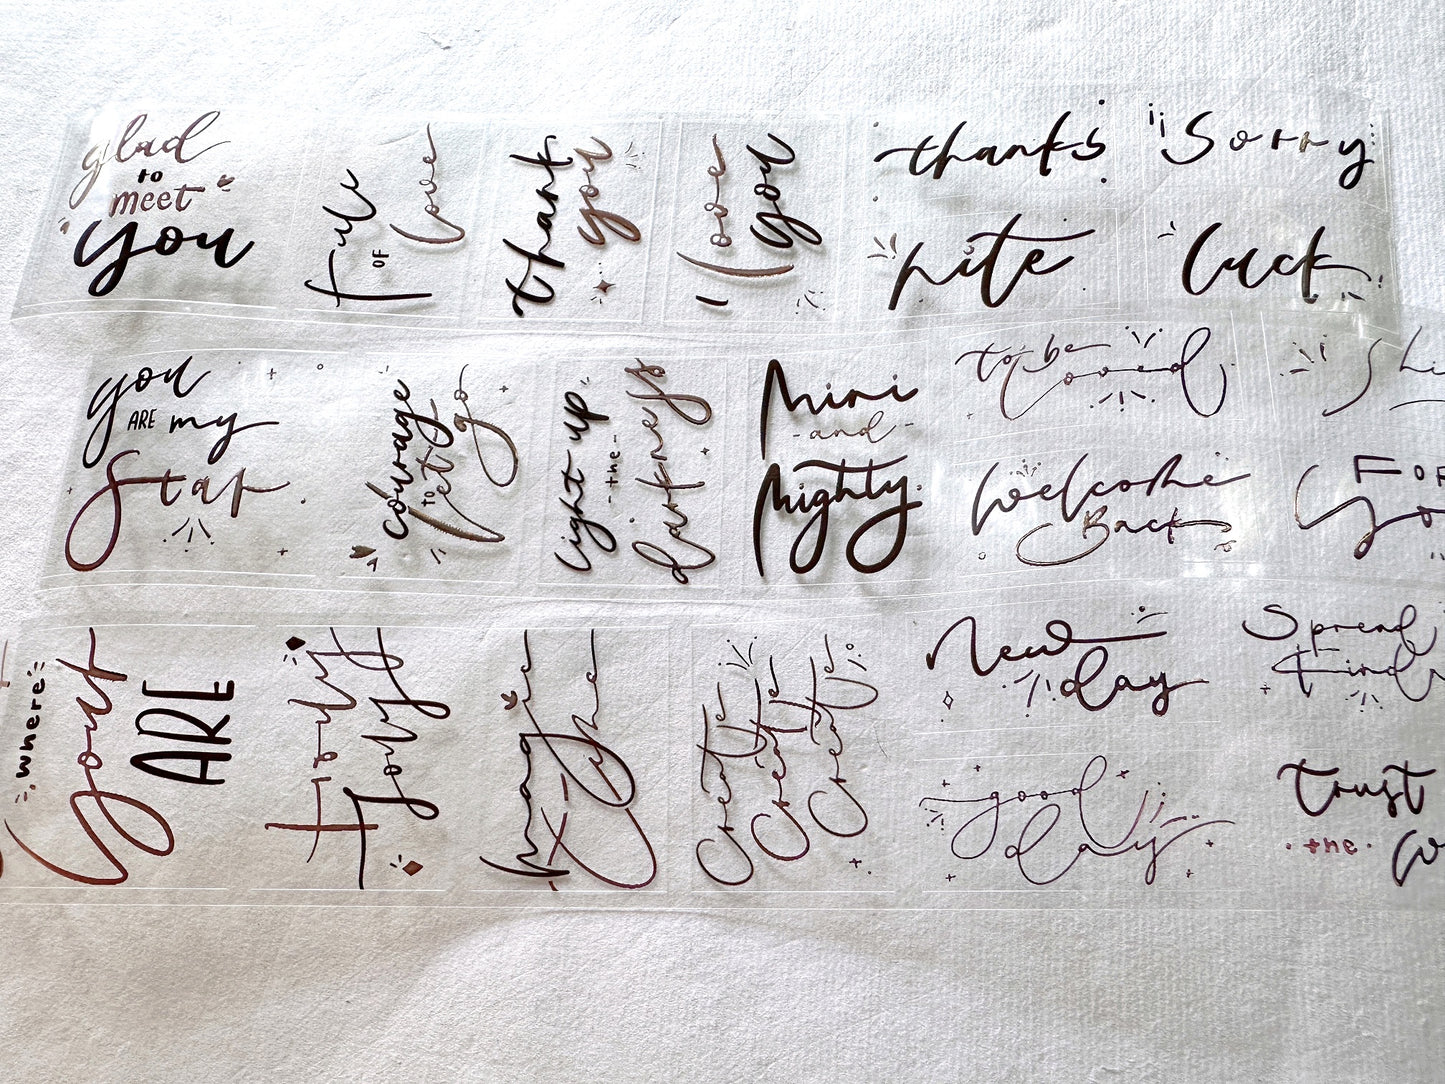 glad
to
meet
you
full
OF
love
thank
you
I love
you
thanks
Sorry
nite
luck
you
ARE my
star
courage
to
let
go
light up
- the -
darkness
Mini
- and -
Mighty
to be
loved
Welcome
Back
FOR
where
your
ARE
Truly
Create
Create
Create
New
day
Spread
Kind
good
day
trust
the